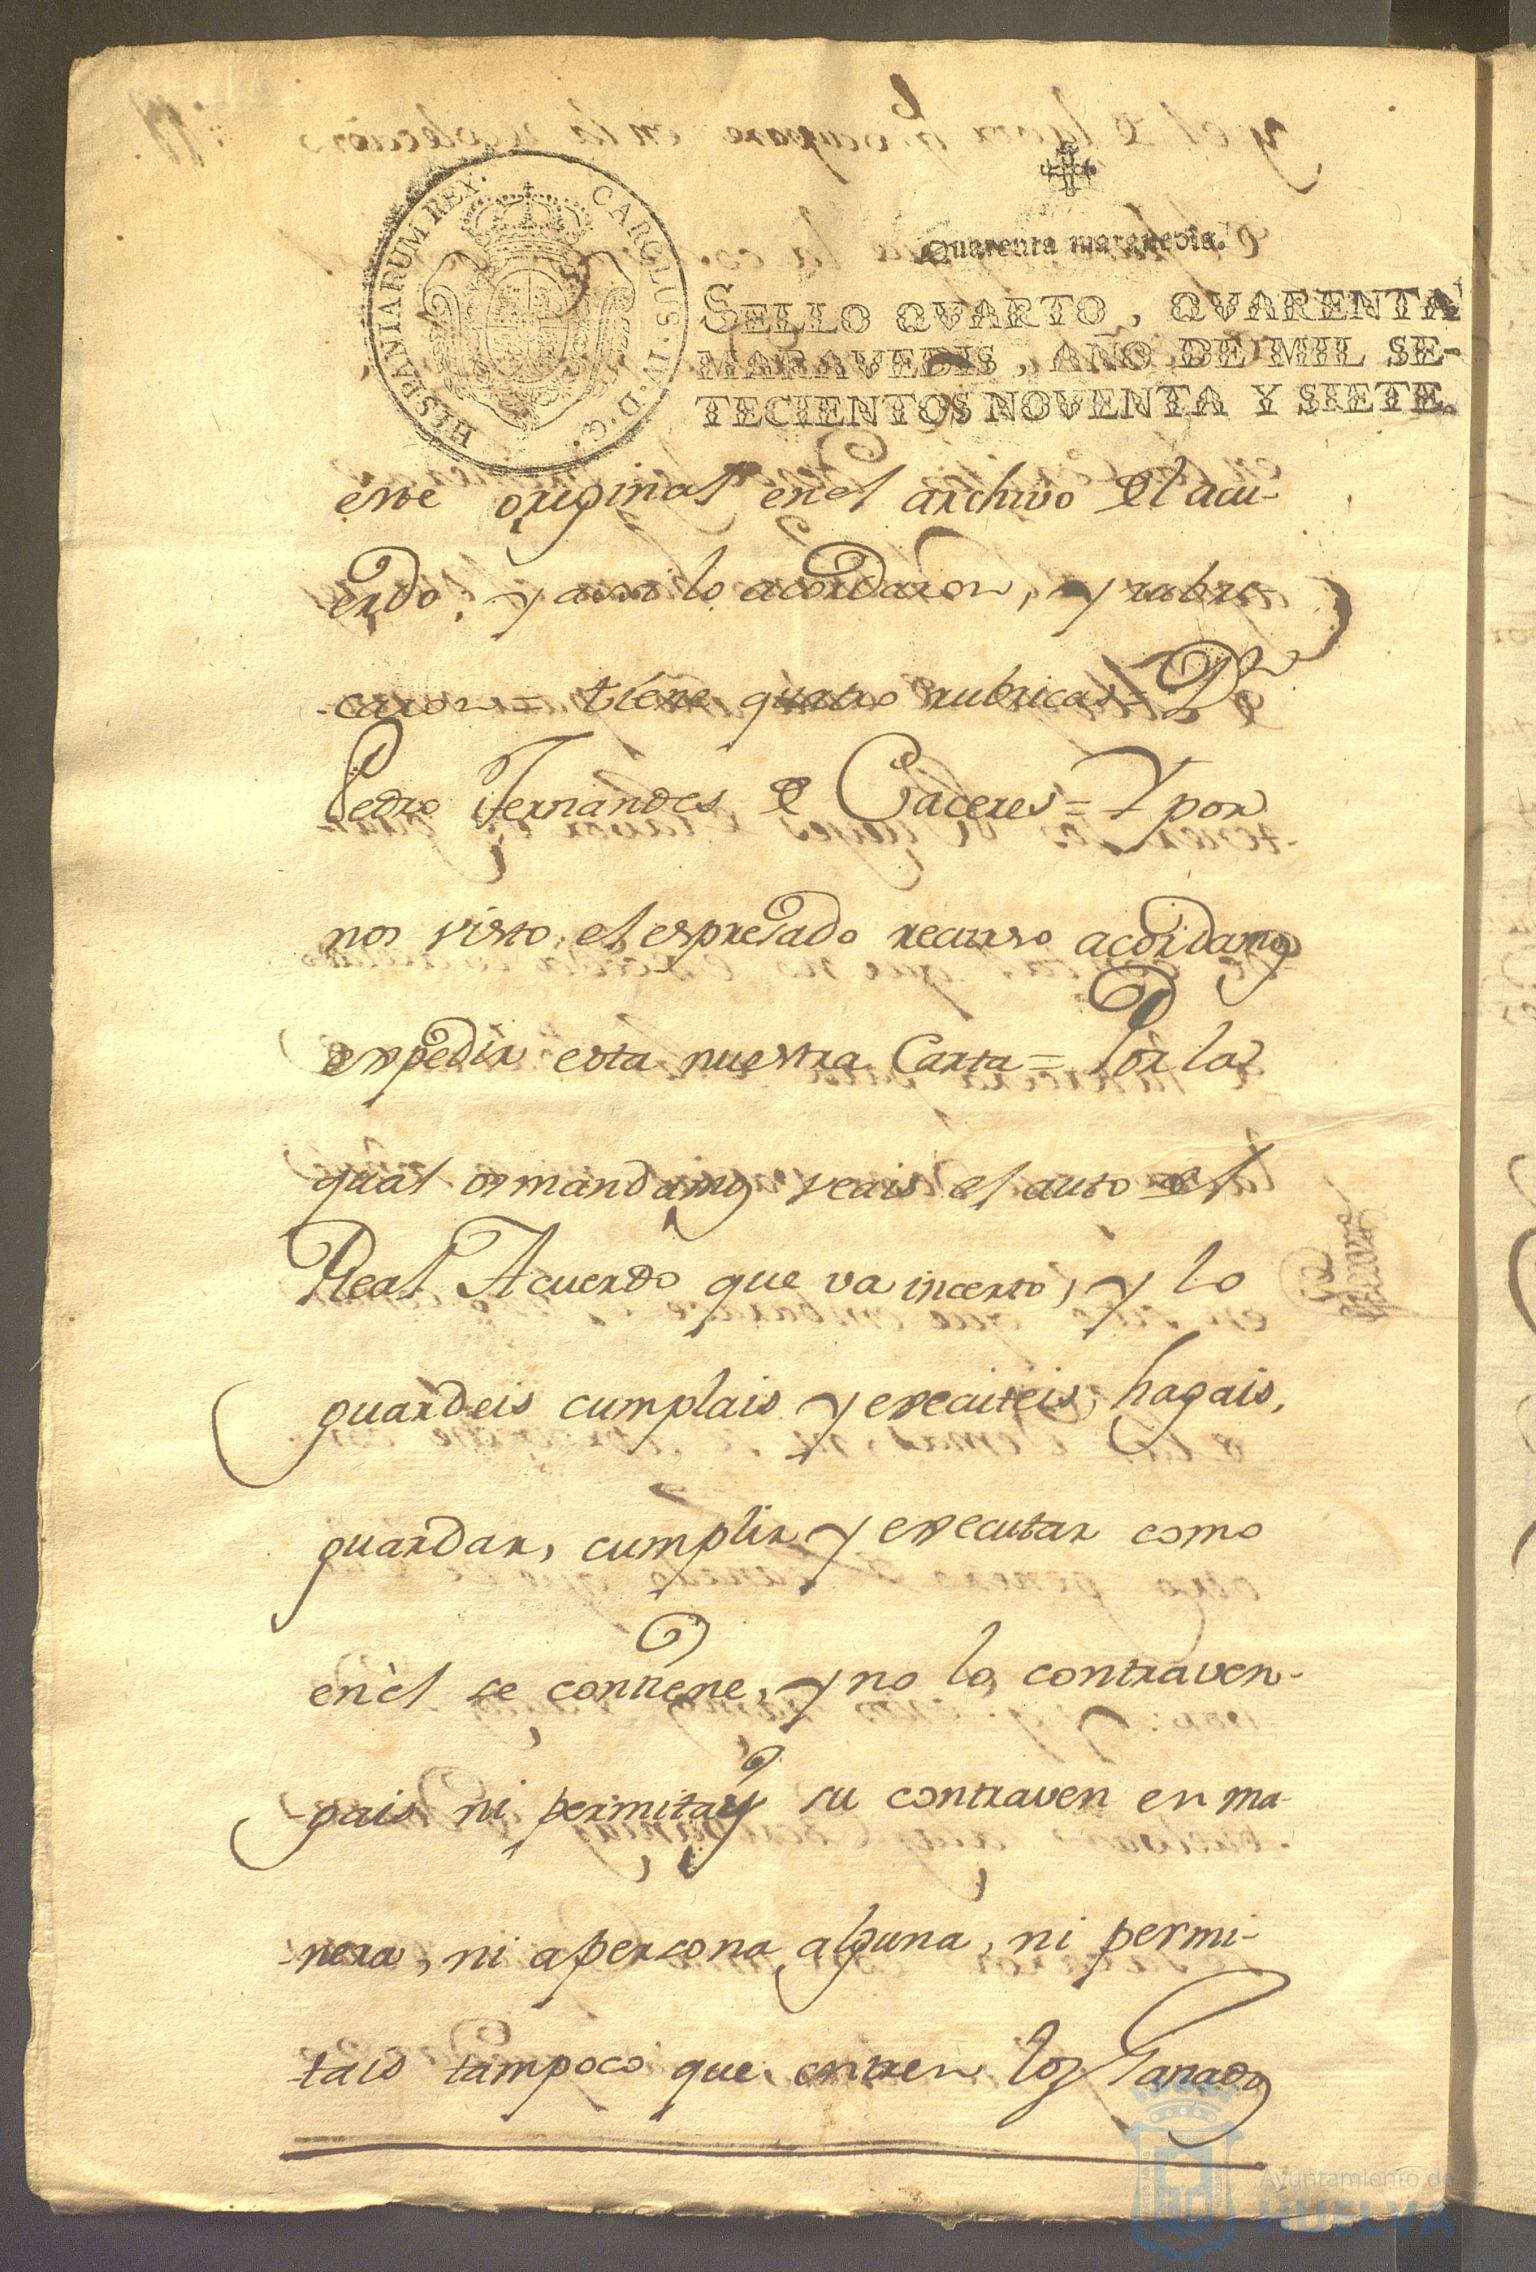 HISPANIARUM REX. CAROLUS. IV. D. G.
Quarenta maravedis.
SELLO QVARTO, QVARENTA
MARAVEDIS, AÑO DE MIL SE-
TECIENTOS NOVENTA Y SIETE.
este original en el archivo del acu-
erdo; y assi lo acordaron, y rubri
caron = tiene quatro rubricas = Dn
Pedro Fernandes de Caceres = Y por
nos visto, el espresado recurso acordamos
expedir esta nuestra Carta = Por la
qual os mandamos veais el auto del
Real Acuerdo que va incerto, y lo
guardeis cumplais y executeis, hagais,
guardar, cumplir y executar como
en èl se contiene, y no lo contraven-
gais ni permitais su contraven en ma-
nera, ni a persona alguna, ni permi-
tais tampoco que entren los Ganados
Ayuntamiento de
HUELVA